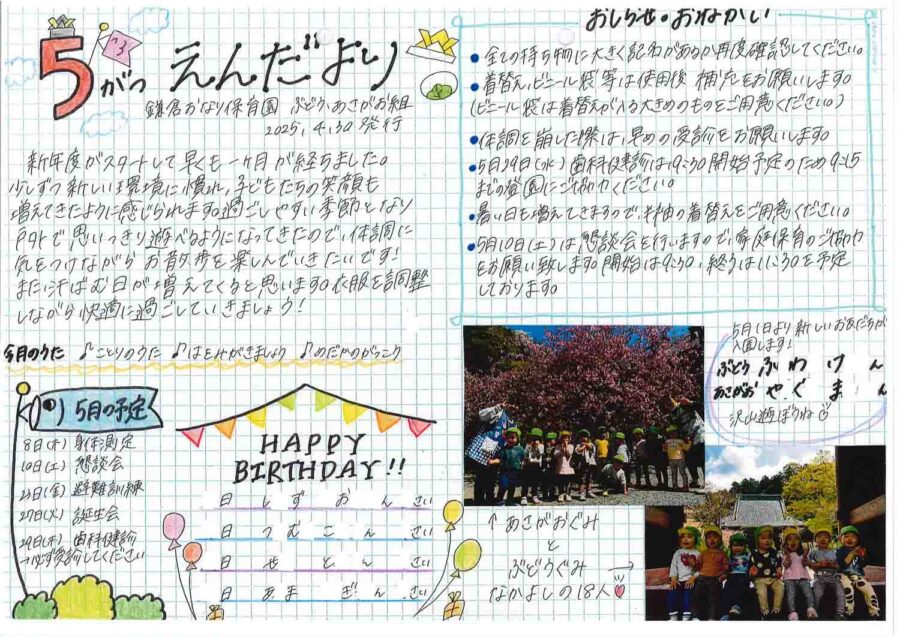 5がつ えんだより
鎌倉おなり保育園 ぶどう・あさがお組
2025.4.30発行
新年度がスタートして早くも一ヶ月が経ちました。
少しずつ新しい環境に慣れ、子どもたちの笑顔も
増えてきたように感じられます。過ごしやすい季節となり
戸外で思いっきり遊べるようになってきたので、体調に
気をつけながらお散歩を楽しんでいきたいです!
また汗ばむ日が増えてくると思います。衣服を調整
しながら快適に過ごしていきましょう!
今月のうた ♪ことりのうた ♪はをみがきましょう ♪めだかのがっこう
おしらせ・おねがい
●全ての持ち物に大きく記名があるか再度確認してください。
●着替え、ビニール袋等は使用後補充をお願いします。
(ビニール袋は着替えが入る大きめのものをご用意ください。)
●体調を崩した際は、早めの受診をお願いします。
●5月29日(木)歯科健診は9:30開始予定のため9:15
までの登園にご協力ください。
●暑い日も増えてきますので、半袖の着替えをご用意ください。
●5月10日(土)は懇談会を行いますので、家庭保育のご協力
をお願い致します。開始は9:30、終了は11:30を予定
しております。
5月1日より新しいお友だちが
入園します!
ぶどう ふわ けん
あさがお やぐ まん
沢山遊ぼうね
5月の予定
8日(木)身体測定
10日(土)懇談会
23日(金)避難訓練
27日(火)誕生会
29日(木)歯科健診
→必ず受診してください
HAPPY
BIRTHDAY!!
日 しず おん さい
日 つむ こん さい
日 せ とん さい
日 あま ぎん さい
↑あさがおぐみ
と
ぶどうぐみ →
なかよしの18人